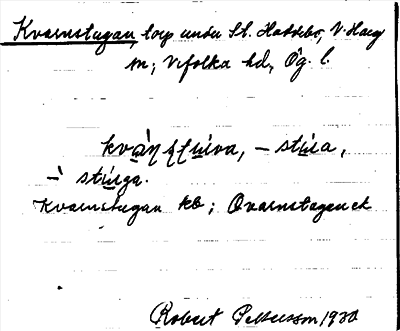 Kvarnstugan, torp under St. Haddebo, V. Harg
sn; Vifolka hd, Ög. l.
kvàɳʂt̠u̠va, – stu̠a,
–̀ stu̠ga.
Kvarnstugan kb; Qvarnstugan ek
Robert Pettersson 1930